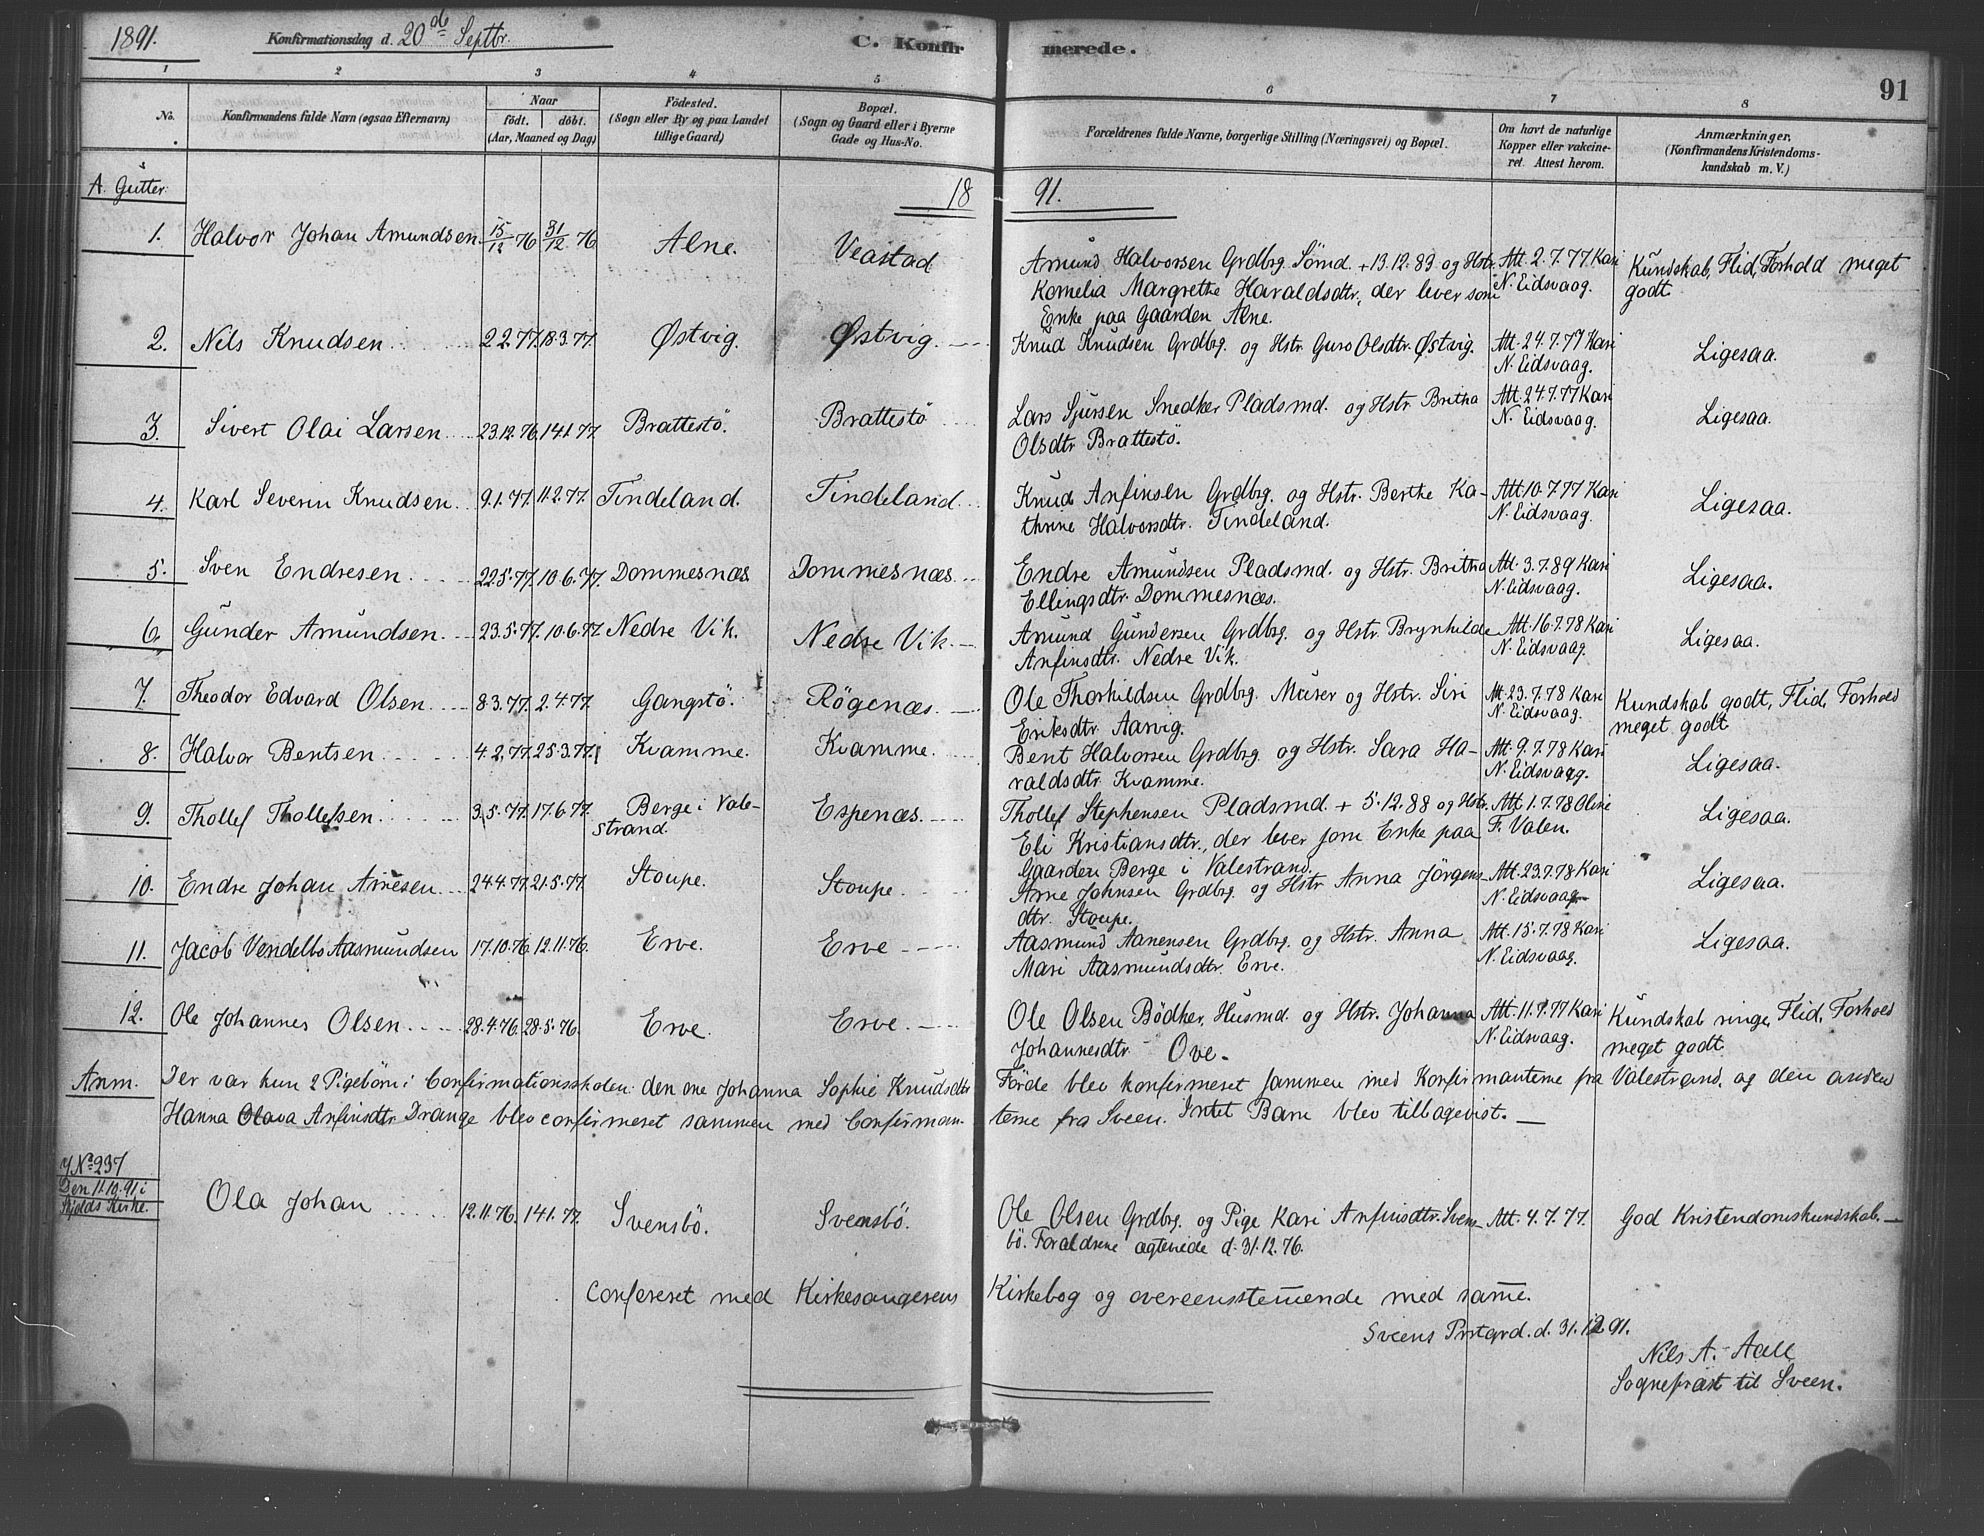 1891. Konfirmationsdag d. 20de Septbr. C. Konfirmerede. 91
1 2 3 4 5 6 7 8
No. Konfirmandens fulde Navn (ogsaa Efternavn) Naar født. døbt. (Aar, Maaned og Dag) Fødested. (Sogn eller By og paa Landet tillige Gaard) Bopæl. (Sogn og Gaard eller i Byerne Gade og Hus-No. Forældrenes fulde Navne, borgerlige Stilling (Næringsvei) og Bopæl. Om havt de naturlige Kopper eller vaccineret. Attest herom. Anmærkninger, (Konfirmandens Kristendomskundskab m. V.)
A. Gutter. 18 91.
1. Halvor Johan Amundsen 15/12 76 31/12 76 Alne. Veastad Amund Halvorsen Grdbrg. Sømd. + 13.12.83 og Hstr. Att. 2.7.77 Kari Kundskab, Flid, Forhold meget
Kornelia Margrethe Haraldsdtr, der lever som N. Eidsvaag. godt.
Enke paa Gaarden Alne.
2. Nils Knudsen 2.2.77. 18.3.77. Østvig. Østvig. Knud Knudsen Grdbrg. og Hstr. Guro Olsdtr. Østvig. Att. 24.7.77 Kari Ligesaa.
N. Eidsvaag.
3. Sivert Olai Larsen 23.12.76. 14.1.77. Brattestö. Brattestö Lars Sjursen Snedker Pladsmd. og Hstr Britha Att. 24.7.77 Kari Ligesaa.
Olsdtr Brattestö. N. Eidsvaag.
4. Karl Severin Knudsen 9.1.77. 11.2.77. Tindeland. Tindeland. Knud Anfinsen Grdbrg. og Hstr. Berthe Ka- Att. 10.7.77 Kari Ligesaa.
thrine Halvorsdtr. Tindeland. N. Eidsvaag.
5. Sven Endresen 22.5.77. 10.6.77. Dommesnæs Dommesnæs. Endre Amundsen Pladsmd. og Hstr. Britha Att. 3.7.89 Kari Ligesaa.
Ellingsdtr. Dommesnæs. N. Eidsvaag.
6. Gunder Amundsen. 23.5.77. 10.6.77 Nedre Vik. Nedre Vik. Amund Gundersen Grdbrg. og Hstr. Brynhilde Att. 16.7.78 Kari Ligesaa.
Anfinsdtr. Nedre Vik. N. Eidsvaag.
7. Theodor Edvard Olsen. 8.3.77. 2.4.77. Gangstö. Rögenæs. Ole Thorkildsen Grdbrg. Murer og Hstr. Siri Att. 23.7.78 Kari Kundskab godt, Flid, Forhold
Eriksdtr. Aarvig. N. Eidsvaag. meget godt
8. Halvor Bentsen 4.2.77. 25.3.77. Kvamme. Kvamme. Bent Halvorsen Grdbrg. og Hstr. Sara Ha- Att. 9.7.78 Kari Ligesaa.
raldsdtr. Kvamme. N. Eidsvaag.
9. Thollef Thollefsen. 3.5.77. 17.6.77. Berge i Vale- Espenæs. Thollef Stephensen Pladsmd. + 5.12.88 og Hstr. Att. 1.7.78 Oline Ligesaa.
strand. Eli Kristiansdtr., der lever som Enke paa F. Valen.
Gaarden Berge i Valestrand.
10. Endre Johan Arnesen 24.4.77. 21.5.77. Stoupe. Stoupe. Arne Johnsen Grdbrg. og Hstr Anna Jörgens- Att. 23.7.78 Kari Ligesaa.
dtr. Stoupe. N. Eidsvaag.
11. Jacob Vendelbo Aasmundsen 17.10.76. 12.11.76. Erve. Erve Aasmund Aanensen Grdbrg. og Hstr. Anna Att. 15.7.78 Kari Ligesaa.
Mari Aasmundsdtr. Erve. N. Eidsvaag.
12. Ole Johannes Olsen. 28.4.76. 28.5.76. Erve. Erve. Ole Olsen Bödker, Husmd. og Hstr. Johanna Att. 11.7.77 Kari Kundskab ringe, Flid, Forhold
Johannesdtr. Ove. N. Eidsvaag. meget godt.
Anm. Der var kun 2 Pigebörn i Confirmationsskolen: den ene Johanna Sophie Knudsdtr Förde blev konfirmeret sammen med Konfirmanterne fra Valestrand, og den anden
Hanna Olava Anfinsdtr. Drange blev confirmeret sammen med Confirman- terne fra Sveen. Intet Barn blev tilbagevist.
J No 237
Den 11.10.91 i
Skjolds Kirke.
Ola Johan 12.11.76. 14.1.77. Svensbö. Svensbö. Ole Olsen Grdbrg. og Pige Kari Anfinsdtr. Svens- Att. 4.7.77. God Kristendomskundskab.
bö. Forældrene ægteviede d. 31.12.76.
Confereret med Kirkesangerens Kirkebog og overeensstemende med same.
Sveens Prstgrd. d. 31.12.91.
Nils A. Aall
Sognepræst til Sveen.